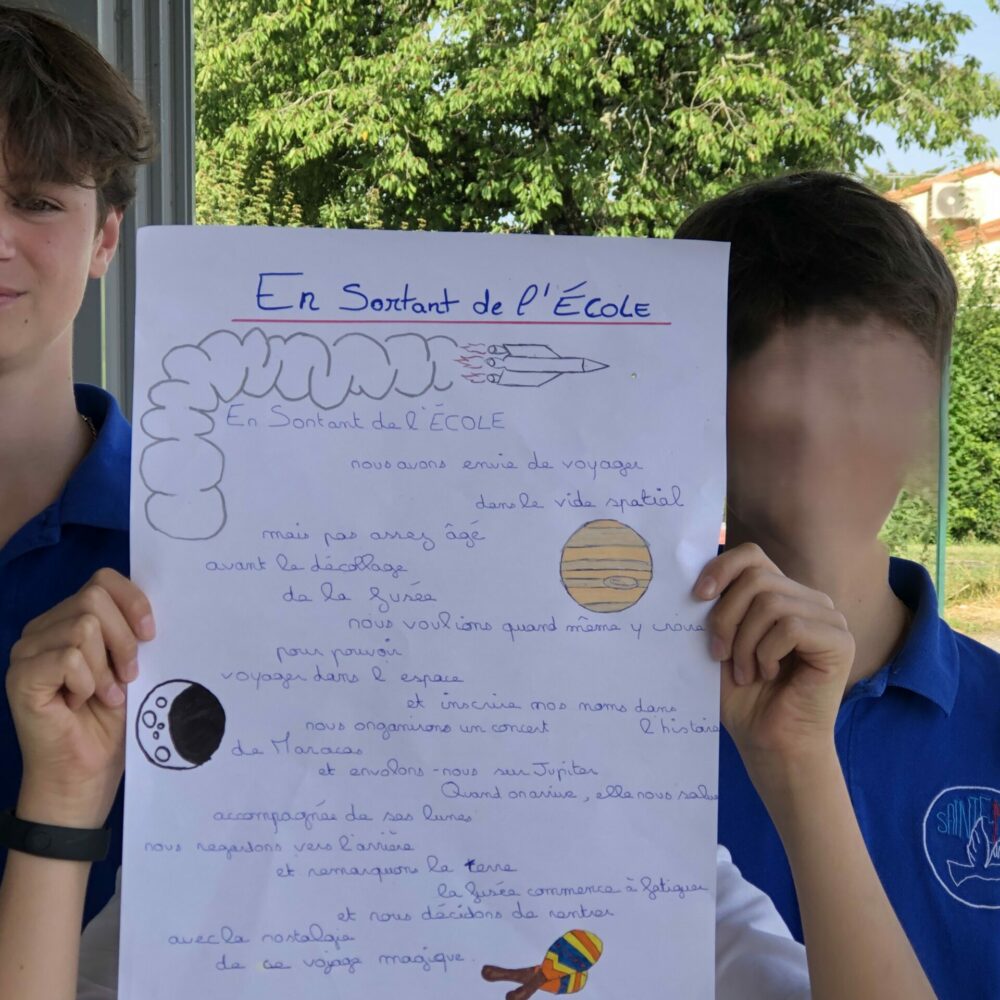 En Sortant de l'ÉCOLE
En Sortant de l'ÉCOLE
nous avons envie de voyager
dans le vide spatial
mais pas assez âgé
avant le décollage
de la fusée
nous voulions quand même y croire
pour pouvoir
voyager dans l'espace
et inscrire nos noms dans
l'histoire
nous organisons un concert
de Maracas
et envolons-nous sur Jupiter
Quand on arrive, elle nous salue
accompagnée de ses lunes
nous regardons vers l'arrière
et remarquons la terre
la fusée commence à fatiguer
et nous décidons de rentrer
avec la nostalgie
de ce voyage magique.
SAINTE